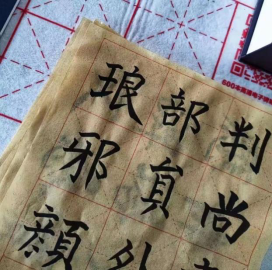 判尚
部貟外
琅邪顔